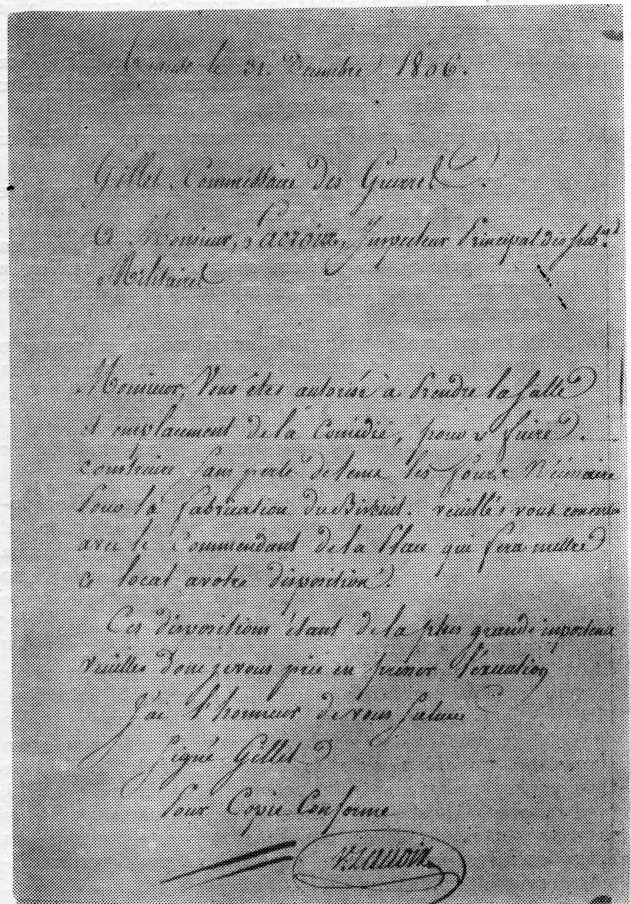 le 31. Decembre 1806.
Gillet, Commissaire des Guerres.
A Monsieur, Lacroix, Inspecteur Principal des Sub.ces
Militaires
Monsieur, Vous êtes autorisé à Prendre la Salle
et emplacement de la Comédie, pour y faire
construire sans perte de tems les fours Nécessaire
Pour la fabrication du Biscuit. veuillés vous concerter
avec le Commendant de la Place qui fera mettre
ce local avotre disposition.
Ces dispositions étant de la plus grande importence
veuilles donc je vous prie en presser l'exécution
J'ai l'honneur de vous saluer
Signé Gillet
Pour Copie Conforme
Lacroix